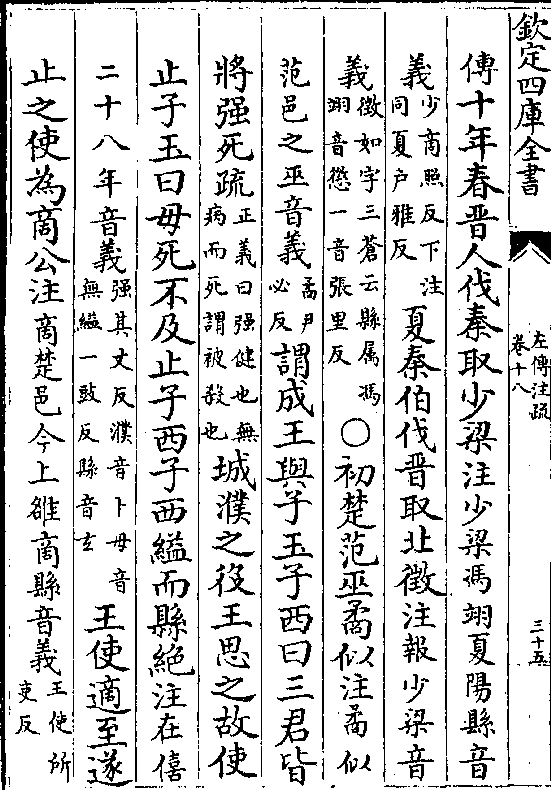 欽定四庫全書
左傳注疏
卷十八
三十五
傳十年春晉人伐秦取少梁注少梁馮翊夏陽縣音
義少商照反下注同夏户雅反夏秦伯伐晉取北徵注報少梁音
義徵如字三蒼云縣属馮翊音懲一音張里反○初楚范巫矞似注矞似
范邑之巫音義矞尹必反謂成王與子玉子西曰三君皆
將强死疏正義曰强健也無病而死謂被殺也城濮之役王思之故使
止子玉曰毋死不及止子西子西縊而縣絶注在僖
二十八年音義强其丈反濮音卜毋音無縊一豉反縣音玄王使適至遂
止之使為商公注商楚邑今上雒商縣音義王使所吏反